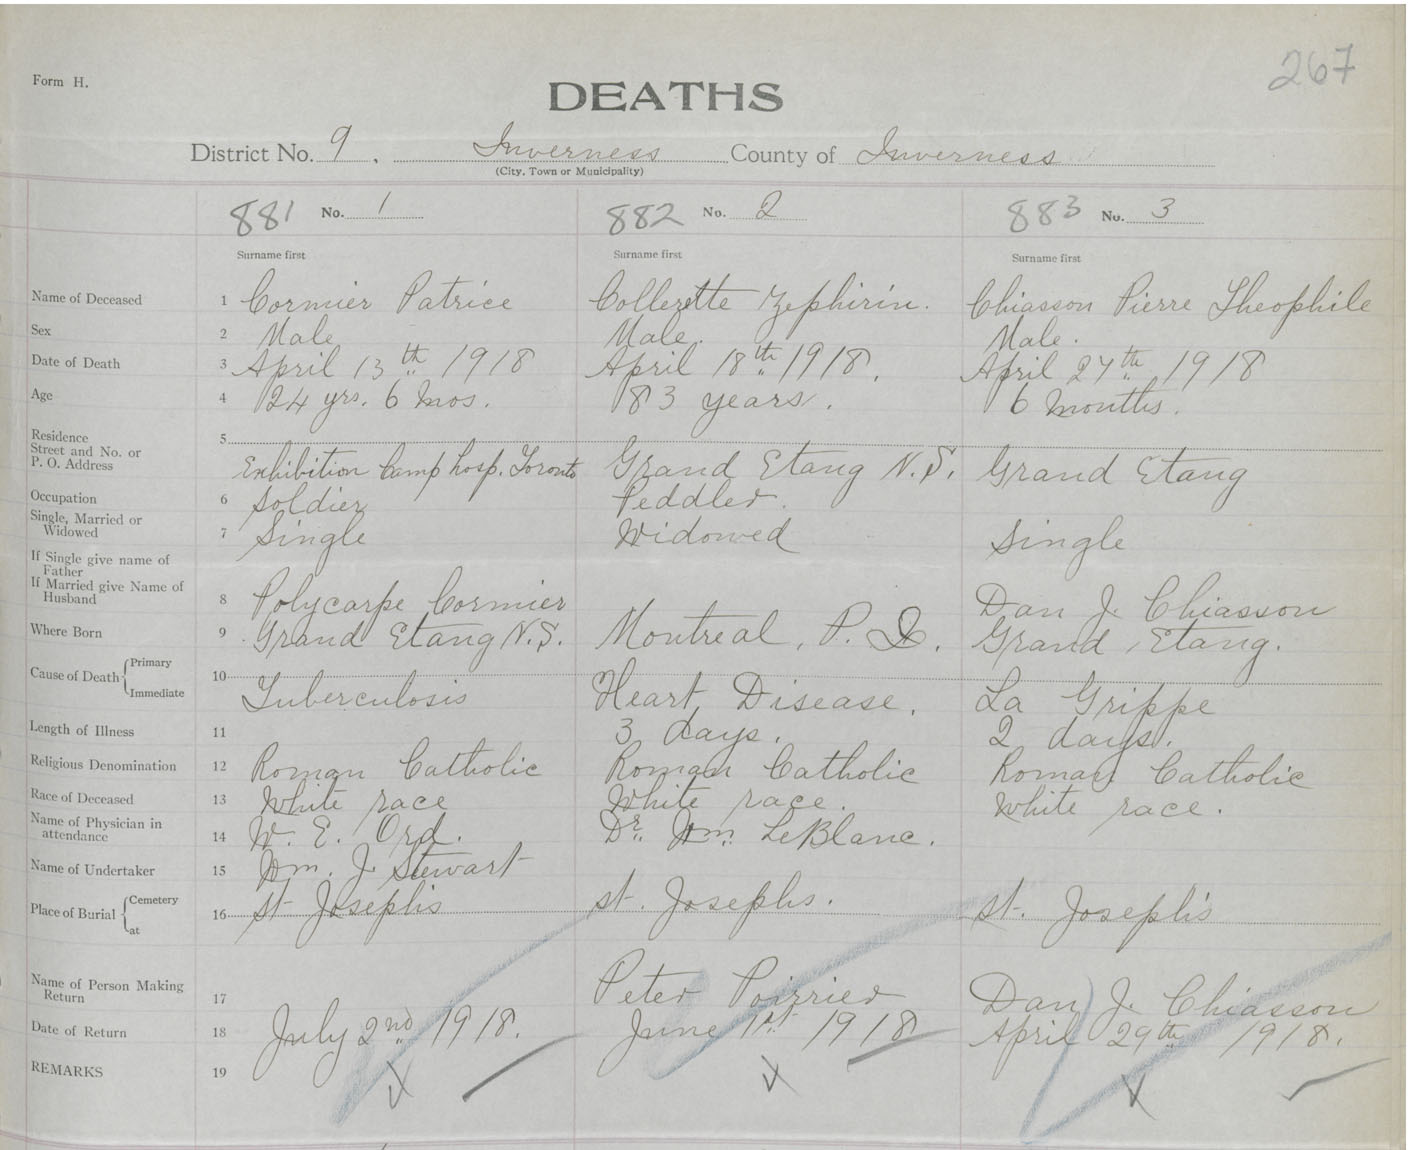 267
Form H.
DEATHS
District No. 9, Inverness County of Inverness
(City, Town or Municipality)
881 No. 1 882 No. 2 883 No. 3
Surname first Surname first Surname first
Name of Deceased 1 Cormier Patrice Collerette Zephirin. Chiasson Pierre Theophile
Sex 2 Male Male. Male.
Date of Death 3 April 13th 1918 April 18th 1918. April 27th 1918
Age 4 24 yrs. 6 mos. 83 years. 6 months.
Residence
Street and No. or
P. O. Address 5 Exhibition Camp hosp. Toronto Grand Etang N.S. Grand Etang
Occupation 6 Soldier Peddler.
Single, Married or
Widowed 7 Single Widowed Single
If Single give name of
Father
If Married give Name of
Husband 8 Polycarpe Cormier Dan J. Chiasson
Where Born 9 Grand Etang N.S. Montreal, P. Q. Grand Etang.
Cause of Death { Primary
Immediate 10 Tuberculosis Heart Disease. La Grippe
Length of Illness 11 3 days. 2 days.
Religious Denomination 12 Roman Catholic Roman Catholic Roman Catholic
Race of Deceased 13 White race White race. White race.
Name of Physician in
attendance 14 W. E. Ord. Dr. Wm. LeBlanc.
Name of Undertaker 15 Wm. J. Stewart
Place of Burial { Cemetery
at 16 St Joseph's St. Josephs. St. Joseph's
Name of Person Making
Return 17 Peter Poirrier Dan J. Chiasson
Date of Return 18 July 2nd 1918. June 1st 1918 April 29th 1918.
REMARKS 19